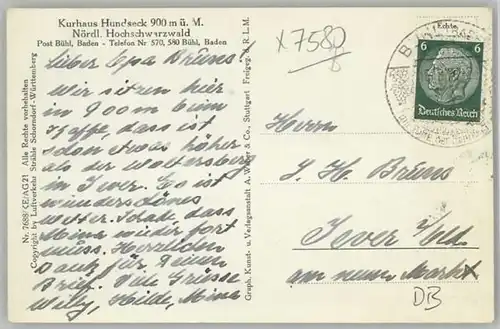 Kurhaus Hundseck 900 m ü. M.
Nördl. Hochschwarzwald
Post Bühl, Baden - Telefon Nr 570, 580 Bühl, Baden
Lieber Opa Brüns!
Wir sitzen hier
in 900 m beim
Kaffe, dass ist
schon etwas höher
als der
in Jever. Es ist
wunderschönes
Wetter. Schade, dass
Mina wieder fort
muss. Herzlichen
Dank für Deinen
Brief. Viele Grüsse
Willy, Hilde, Mina
Nr. 7688/KE/AG 21 Alle Rechte vorbehalten
Copyright by Luftverkehr Strähle Schorndorf-Württemberg
Graph. Kunst- u. Verlagsanstalt A. Weber & Co., Stuttgart Freigeg. d. R.L.M.
x 7580
Echte
6 6
Deutsches Reich
Herrn
J. H. Brüns
Jever i/Old
am neuen Markt
DB